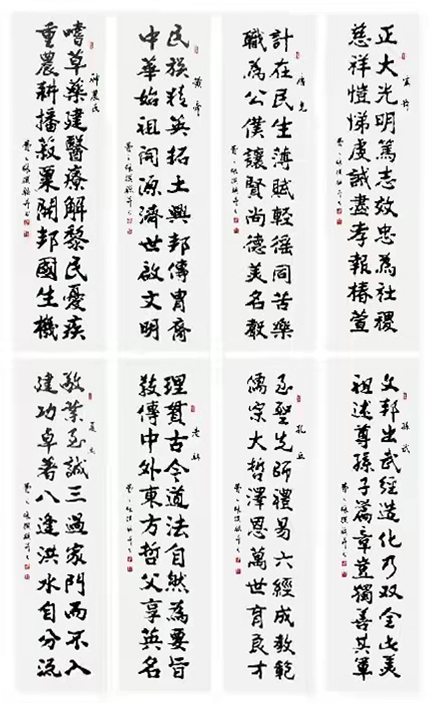 虞舜
正大光明篤志效忠為社稷
慈祥愷悌虔誠盡孝報椿萱
唐堯
計在民生薄賦輕徭同苦樂
職為公僕讓賢尚德美名
黃帝
民族精英拓土興邦傳胄裔
中華始祖開源濟世啟文明
神農氏
嗜草藥建醫療解黎民憂疾
重農耕播穀粟開邦國生機
孫武
文邦出武經造化乃双全此美
祖述尊孫子篇章豈獨善其軍
孔丘
至聖先師禮易六經成教範
儒宗大哲澤恩萬世育良才
老聃
理貫古今道法自然為要旨
教傳中外東方哲父享英名
夏禹
敬業至誠三過家門而不入
建功卓著八逢洪水自分流